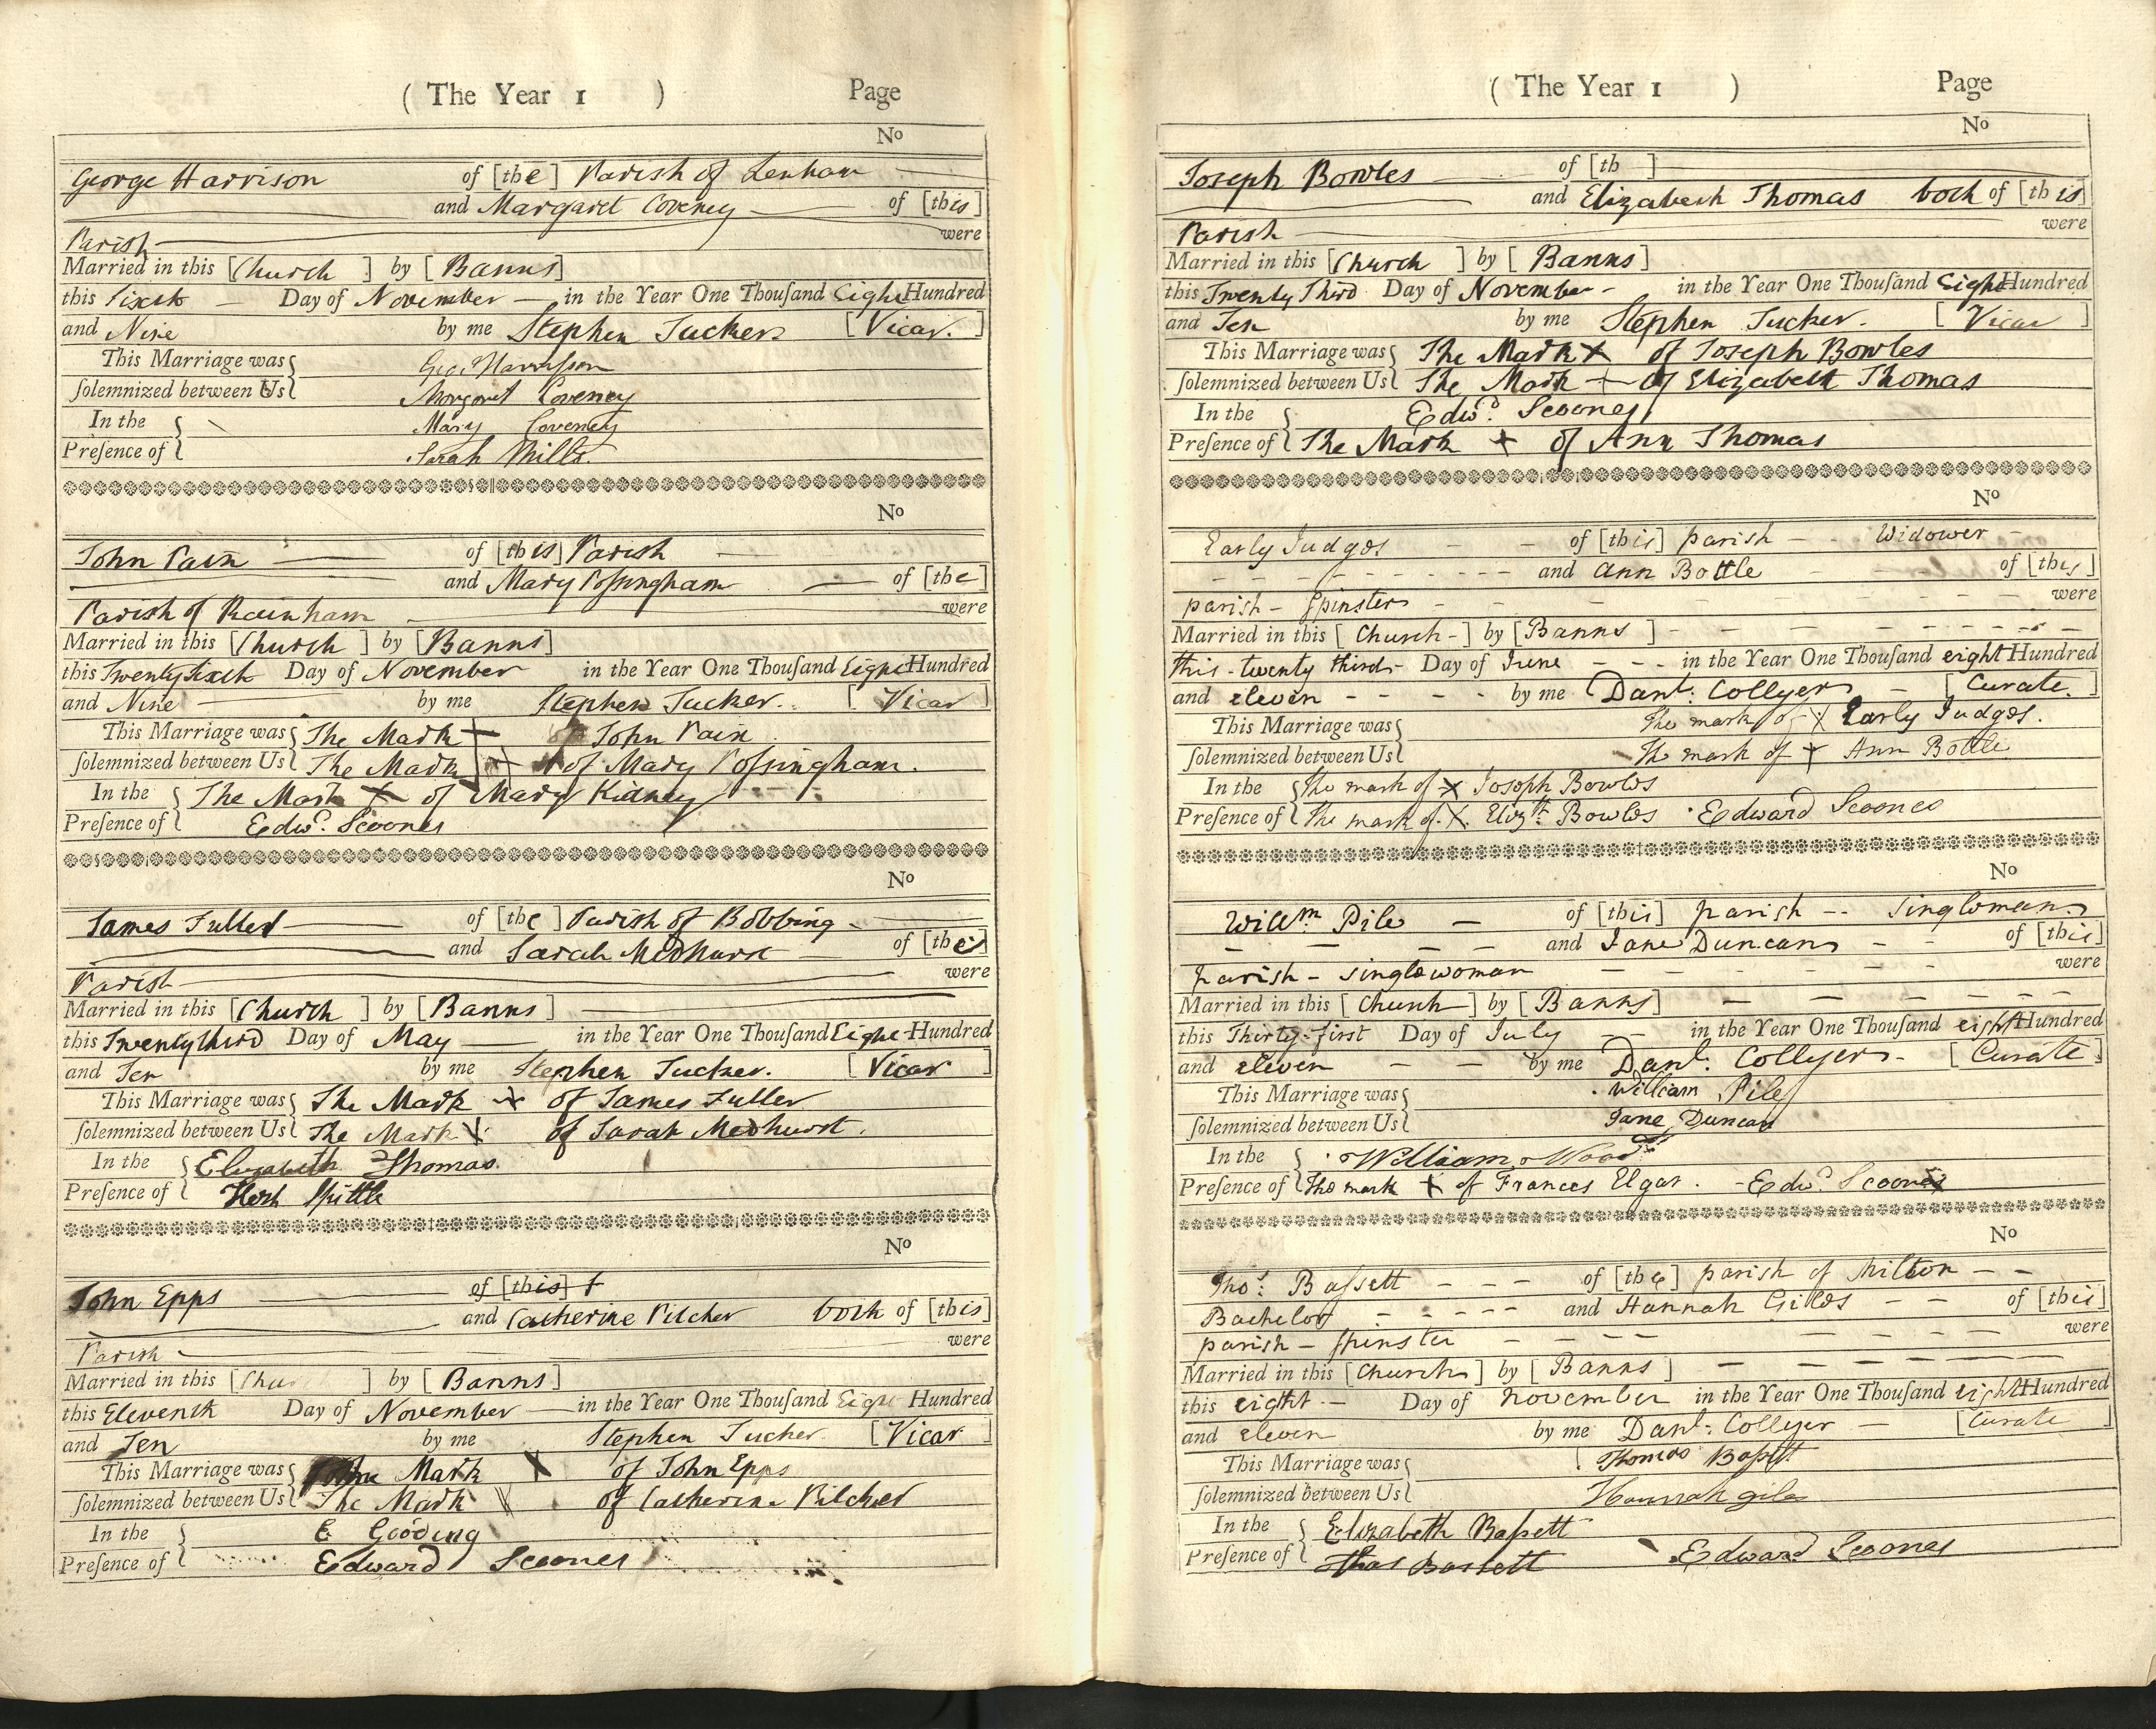 ( The Year 1 ) Page
No
George Harrison of [the] Parish of Lenham
and Margaret Coveney of [this]
Parish were
Married in this [Church] by [Banns]
this Sixth Day of November in the Year One Thousand Eight Hundred
and Nine by me Stephen Tucker [Vicar.]
This Marriage was Geo. Harrisson
solemnized between Us Margaret Coveney
In the Mary Coveney
Presence of Sarah Mills.
No
John Pain of [this] Parish
and Mary Possingham of [the]
Parish of Rainham were
Married in this [Church] by [Banns]
this Twenty Sixth Day of November in the Year One Thousand Eight Hundred
and Nine by me Stephen Tucker. [Vicar]
This Marriage was The Mark + John Pain
solemnized between Us The Mark + of Mary Possingham.
In the The Mark + of Mary Kidney
Presence of Edwd. Scoones
No
James Fuller of [the] Parish of Bobbing
and Sarah Medhurst of [the]
Parish were
Married in this [Church] by [Banns]
this Twenty third Day of May in the Year One Thousand Eight Hundred
and Ten by me Stephen Tucker. [Vicar]
This Marriage was The Mark x of James Fuller
solemnized between Us The Mark X of Sarah Medhurst.
In the Elizabeth Thomas.
Presence of Spittle
No
John Epps of [this]
and Catherine Pilcher both of [this]
Parish were
Married in this [Church] by [Banns]
this Eleventh Day of November in the Year One Thousand Eight Hundred
and Ten by me Stephen Tucker [Vicar]
This Marriage was The Mark X of John Epps
solemnized between Us The Mark of Catherine Pilcher
In the E Gooding
Presence of Edward Scoones
( The Year 1 ) Page
No
Joseph Bowles of [th ]
and Elizabeth Thomas both of [this]
Parish were
Married in this [Church] by [Banns]
this Twenty Third Day of November in the Year One Thousand Eight Hundred
and Ten by me Stephen Tucker. [Vicar]
This Marriage was The Mark X of Joseph Bowles
solemnized between Us The Mark + of Elizabeth Thomas
In the Edwd. Scoones
Presence of The Mark + of Ann Thomas
No
Early Judges of [this] parish Widower
and Ann Bottle of [this]
parish - Spinster were
Married in this [Church] by [Banns]
this twenty third Day of June in the Year One Thousand eight Hundred
and eleven by me Danl. Collyer [Curate.]
This Marriage was The mark of X Early Judges.
solemnized between Us The mark of + Ann Bottle
In the The mark of x Joseph Bowles
Presence of The mark of X Elizth. Bowles Edward Scoones
No
Willm. Pile of [this] parish -- Singleman
and Jane Duncan of [this]
parish - singlewoman were
Married in this [Church] by [Banns]
this Thirty-first Day of July in the Year One Thousand eight Hundred
and eleven by me Danl. Collyer [Curate]
This Marriage was William Pile
solemnized between Us Jane Duncan
In the William Wood
Presence of The mark + of Frances Elgar. Edwd. Scoones
No
Thos: Bassett of [the] parish of Milton
Bachelor and Hannah Gilds of [this]
parish - Spinster were
Married in this [Church] by [Banns]
this eight Day of november in the Year One Thousand eight Hundred
and eleven by me Danl. Collyer [Curate]
This Marriage was Thomas Bassett
solemnized between Us Hannah
In the Elizabeth Bassett
Presence of Thos Bassett Edward Scoones